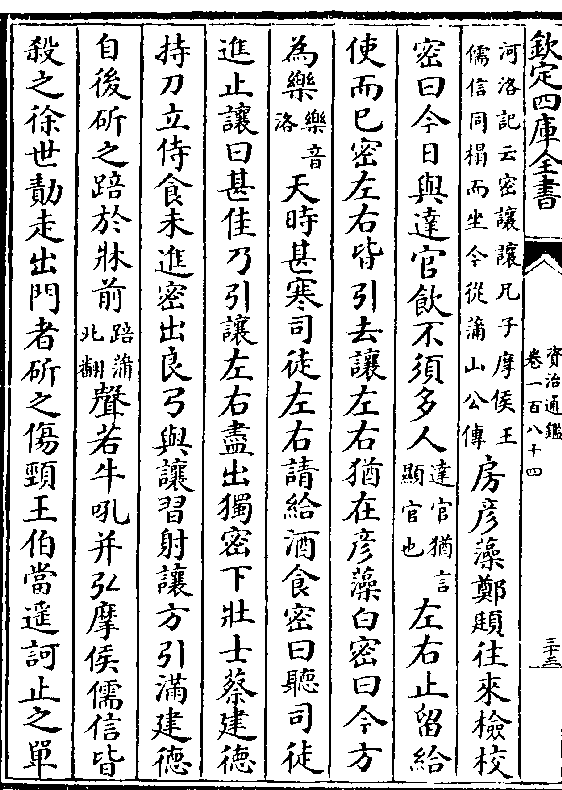 欽定四庫全書
資治通鑑
卷一百八十四
三十三
河洛記云密讓讓兄子摩侯王
儒信同榻而坐今從蒲山公傳
房彥藻鄭頲往來檢校
密曰今日與達官飲不須多人
達官猶言
顯官也
左右止留給
使而已密左右皆引去讓左右猶在彥藻白密曰今方
為樂
樂音
洛
天時甚寒司徒左右請給酒食密曰聽司徒
進止讓曰甚佳乃引讓左右盡出獨密下壯士蔡建德
持刀立侍食未進密出良弓與讓習射讓方引滿建德
自後斫之踣於牀前
踣蒲
北翻
聲若牛吼并弘摩侯儒信皆
殺之徐世勣走出門者斫之傷頸王伯當遙訶止之單